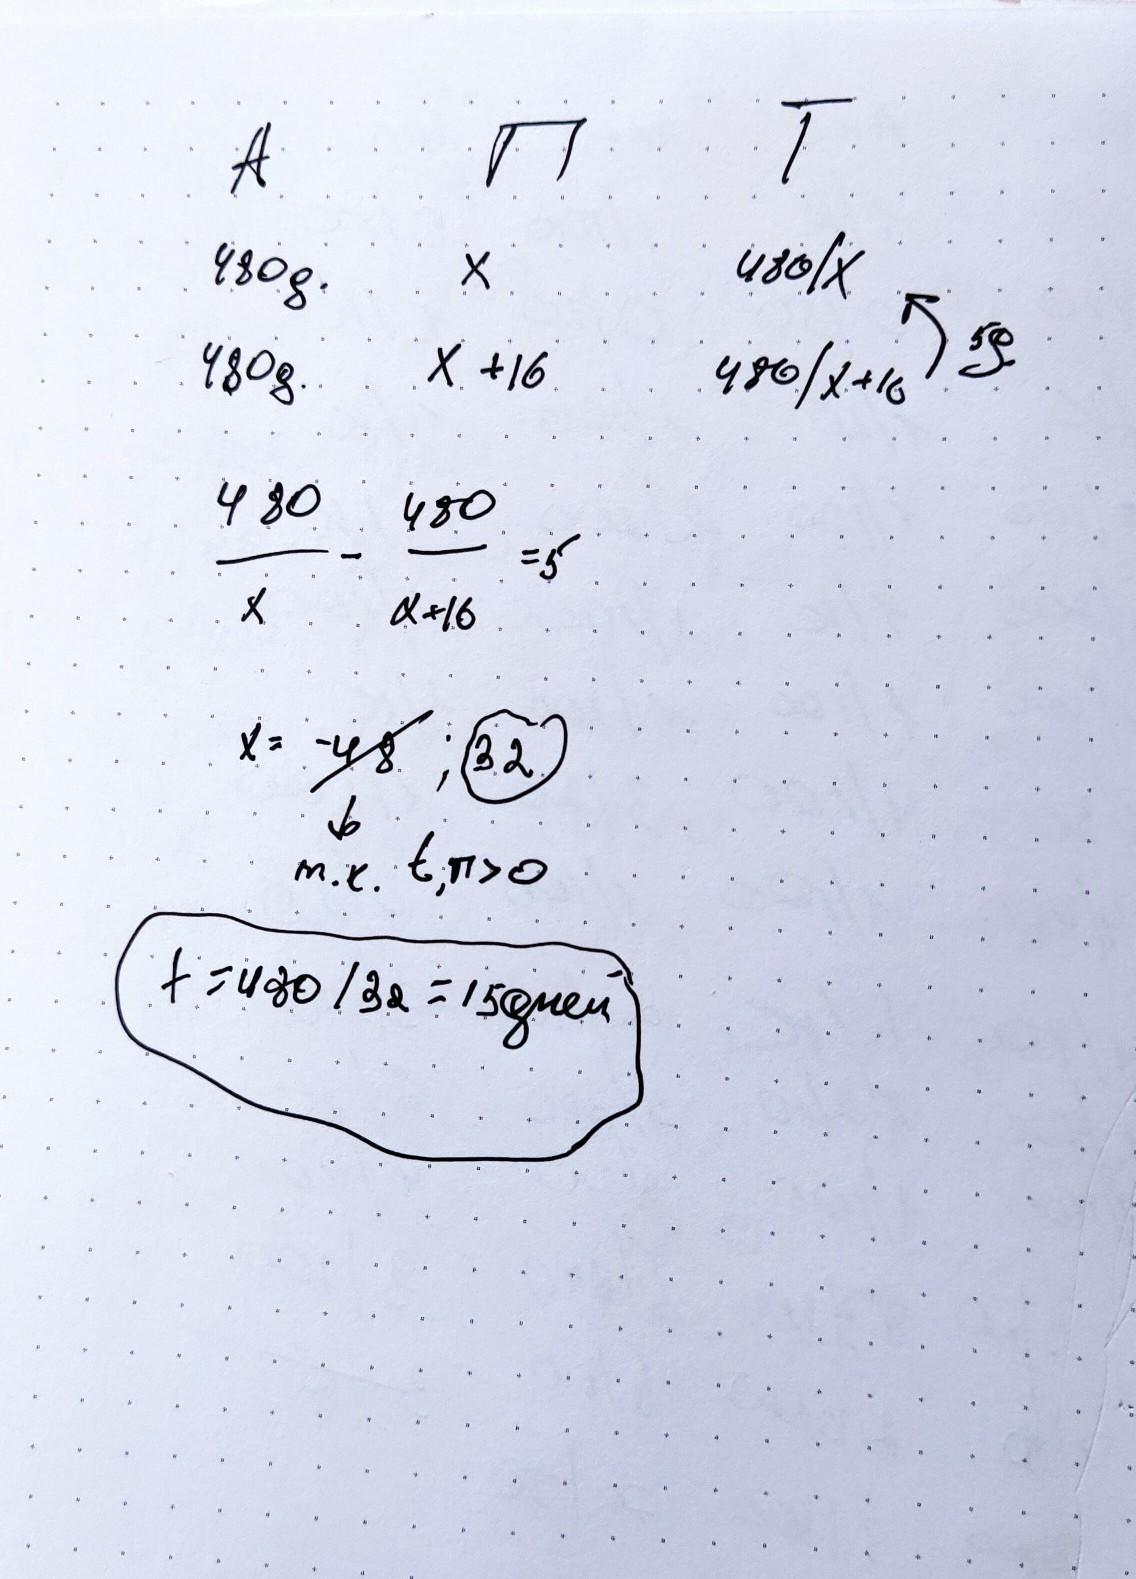 А П Т
480g. x 480/x
480g. x+16 480/x+16 5g
480/x - 480/x+16 = 5
x = -48 ; 32
т.к. t, п > 0
t = 480/32 = 15 дней